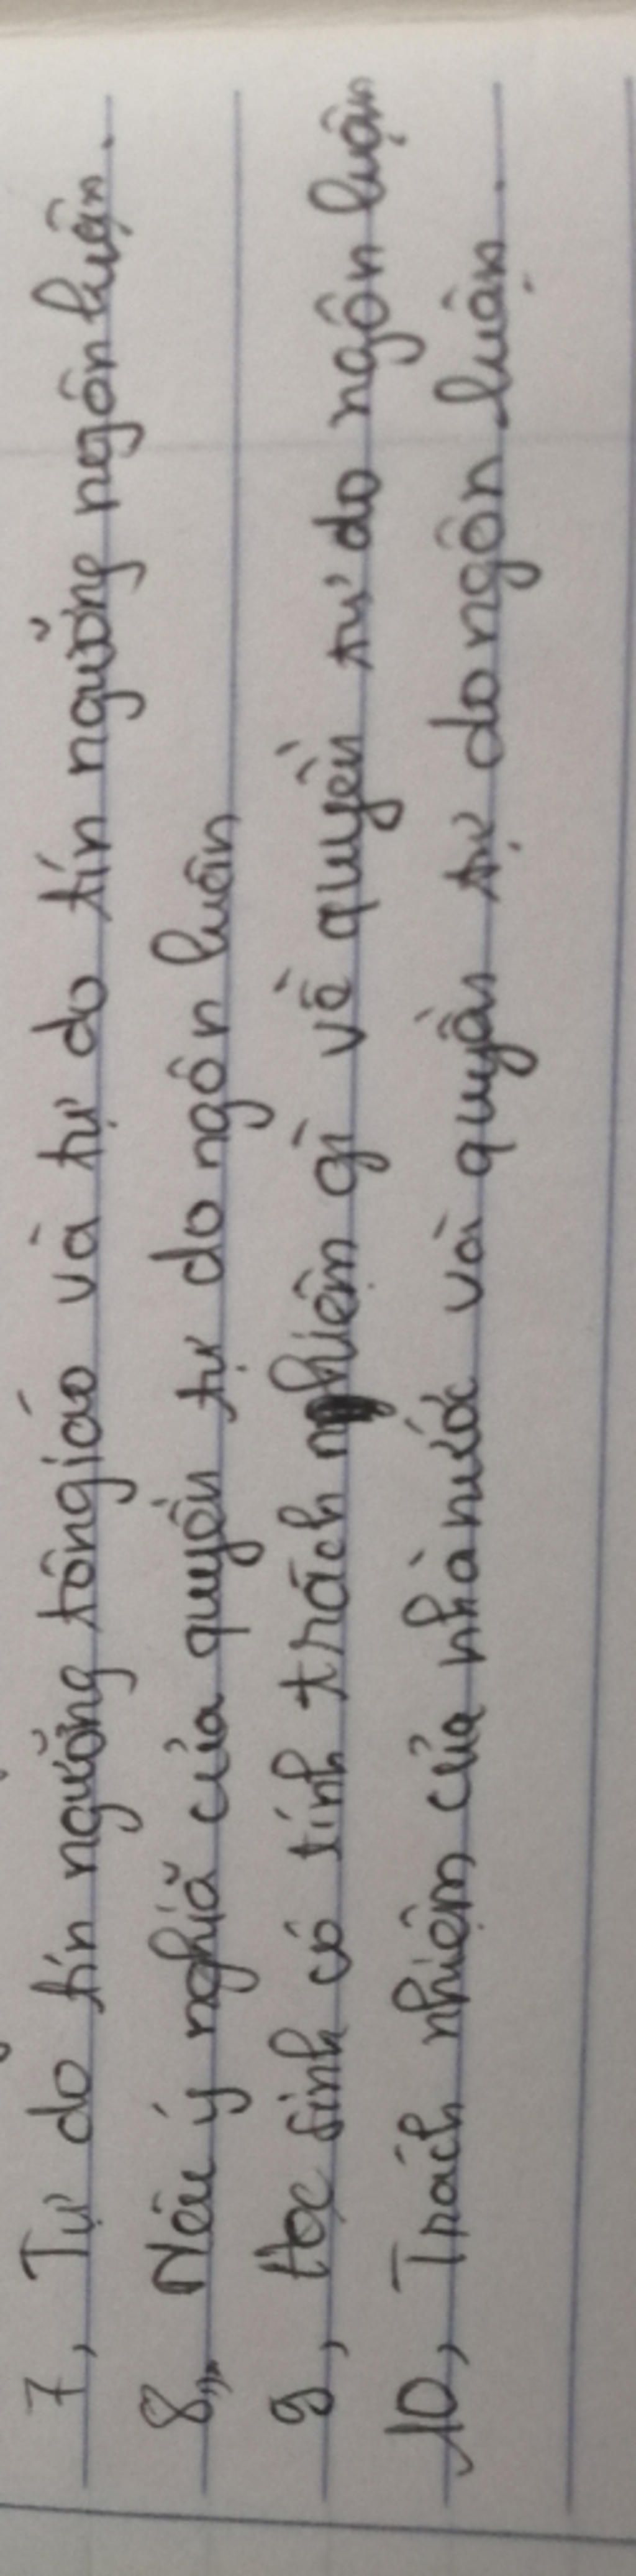 7, Tự do tín ngưỡng tôn giáo và tự do tín ngưỡng ngôn luận.
8, Nêu ý nghĩa của quyền tự do ngôn luận
9, Học sinh có tính trách nhiệm gì về quyền tự do ngôn luận
10, Trách nhiệm của nhà nước với quyền tự do ngôn luận.